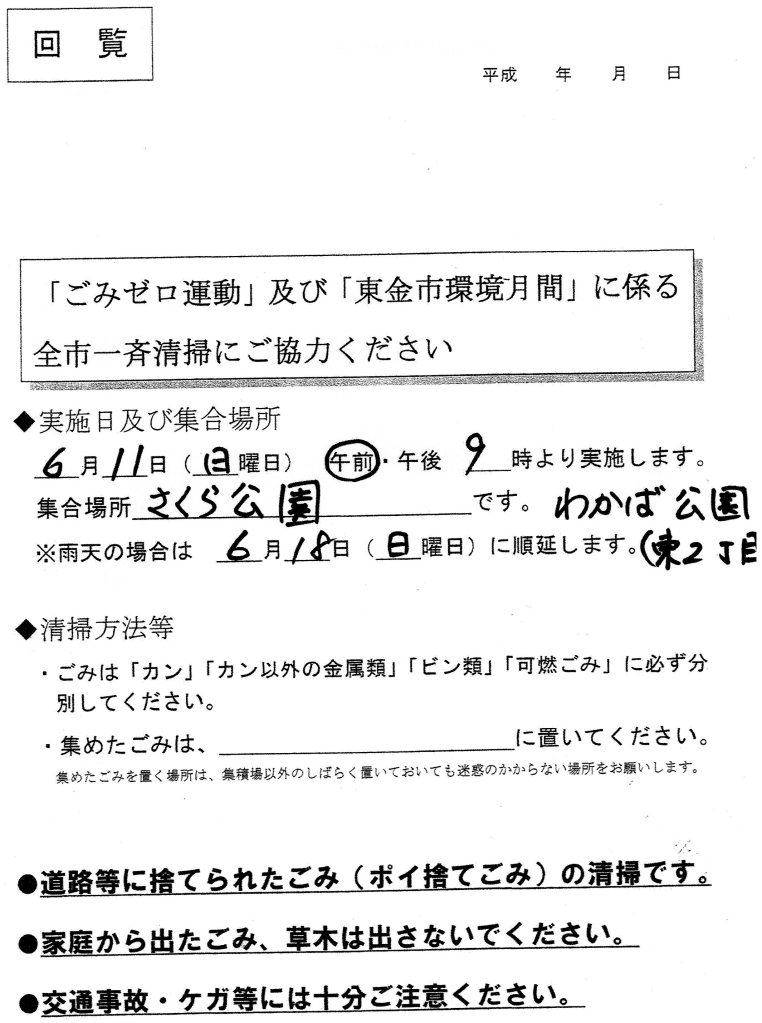 回覧
平成　　年　　月　　日
「ごみゼロ運動」及び「東金市環境月間」に係る
全市一斉清掃にご協力ください
◆実施日及び集合場所
6月11日（日曜日）　午前・午後　9時より実施します。
集合場所 さくら公園 です。 わかば公園
※雨天の場合は　6月18日（日曜日）に順延します。（東2丁目
◆清掃方法等
・ごみは「カン」「カン以外の金属類」「ビン類」「可燃ごみ」に必ず分
別してください。
・集めたごみは、＿＿＿＿＿＿＿＿＿＿に置いてください。
集めたごみを置く場所は、集積場以外のしばらく置いておいても迷惑のかからない場所をお願いします。
●道路等に捨てられたごみ（ポイ捨てごみ）の清掃です。
●家庭から出たごみ、草木は出さないでください。
●交通事故・ケガ等には十分ご注意ください。